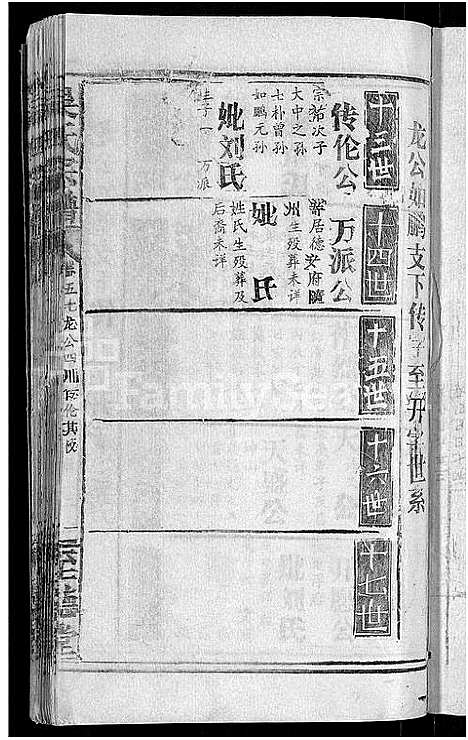 龙公如鹏支下传字至升字世系
十三世
传伦公
宗祐次子
大中之孙
七朴曾孙
如鹏元孙
妣刘氏
生子一 万派
十四世
万派公
辭居德安府隨
州生殁葬未详
妣 氏
姓氏生殁葬及
后裔未详
十五世
十六世
十七世
卷五七龙公四
FamilySearch